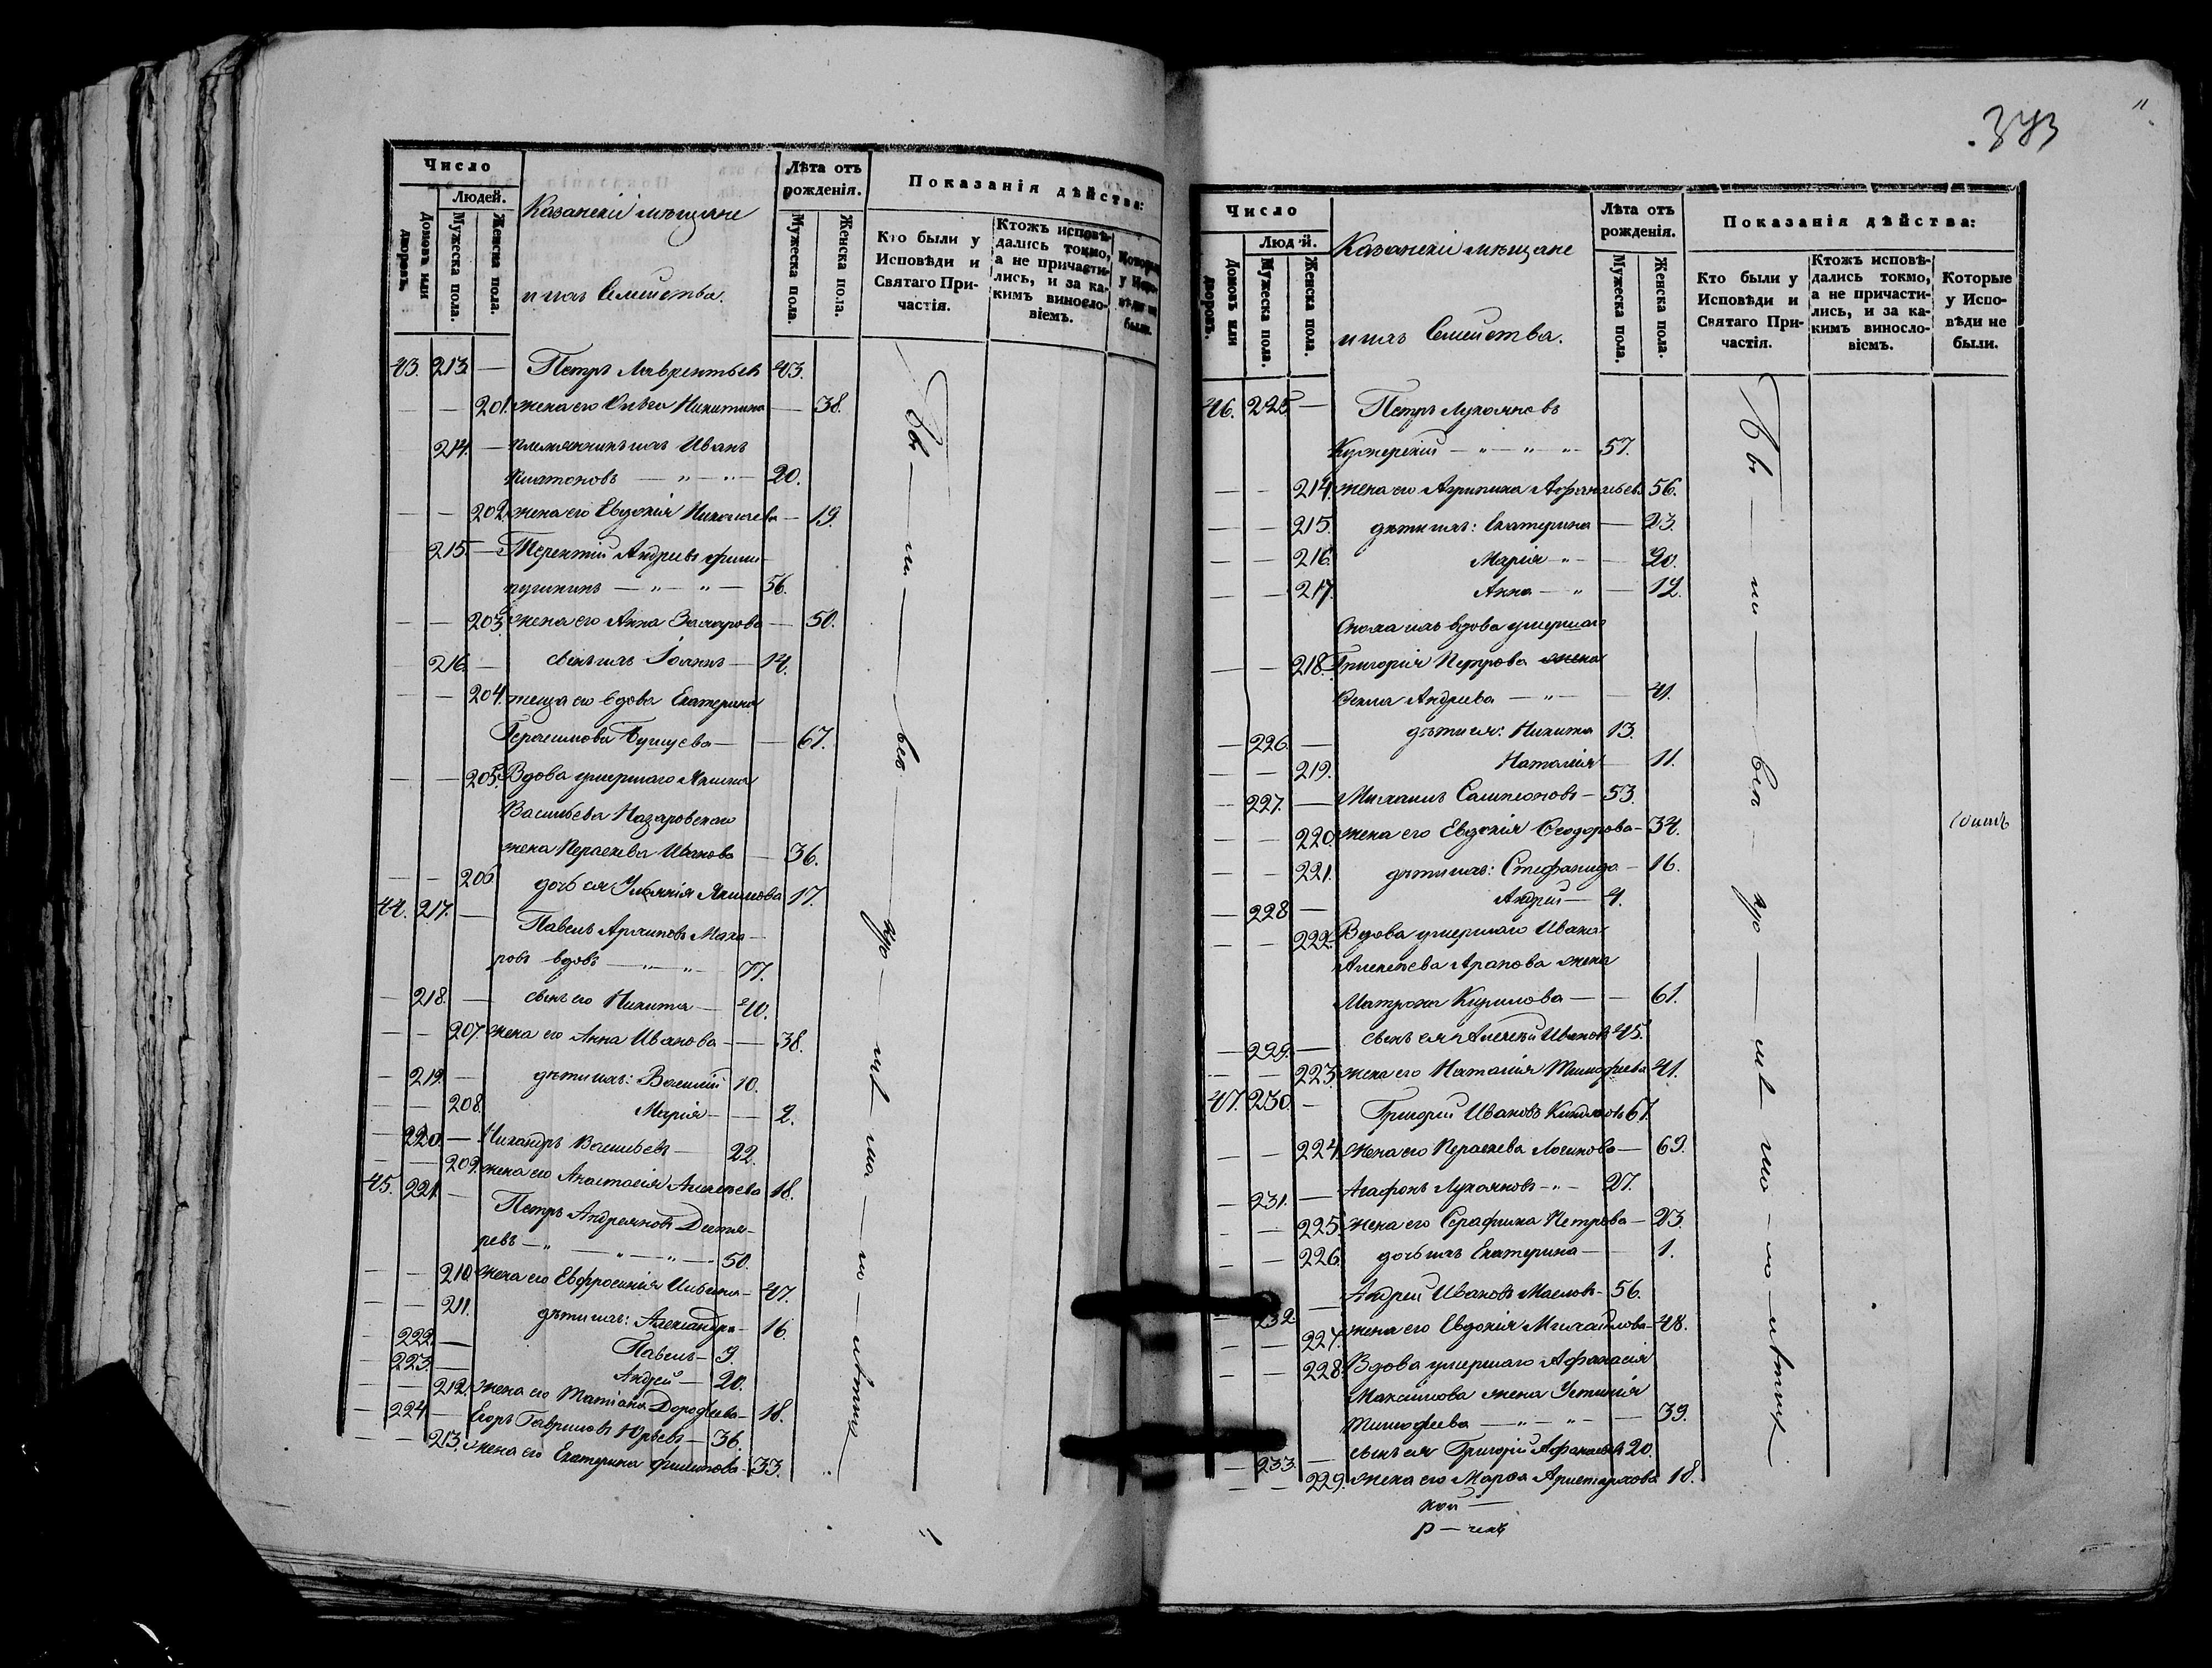 Число
Людей.
Домовъ или дворовъ.
Мужеска пола.
Женска пола.
Казанскіи мѣщане
и ихъ Семейства.
Лѣта отъ рожденія.
Мужеска пола.
Женска пола.
Показанія дѣйства:
Кто были у Исповѣди и Святаго Причастія.
Ктожъ исповѣдались токмо, а не причастились, и за какимъ винословіемъ.
Которые у Исповѣди не были.
43. 213. — Петръ Лаврентьевъ 43.
— — 201. жена его Ольга Никитина — 38.
— 214. — племянникъ ихъ Иванъ
Платоновъ — " — " — 20.
— — 202. жена его Евдокія Николаева — 19.
— 215. — Терентій Андреевъ Фили-
пушкинъ — " — " — 56.
— — 203. жена его Анна Захарова — 50.
— 216. — сынъ ихъ Іоаннъ — 14.
— — 204. теща его вдова Екатерина
Герасимова — — 67.
— — 205. Вдова умершаго Якима
Васильева Назаровскаго
жена Параскева Иванова — 36.
— — 206 дочь ея Ульянія Якимова 17.
44. 217. — Павелъ Архиповъ Мака-
ровъ вдовъ — " — " — 77.
— 218. — сынъ его Никита — 40.
— — 207. жена его Анна Иванова — — 38.
— 219. — дѣти ихъ: Василій 10.
— — 208. Марія — — 2.
— 220. — Никандръ Васильевъ — 22.
— — 209. жена его Анастасія Алексѣева 18.
45. 221. — Петръ Андреяновъ Дегтя-
ревъ — " — " — " — 50.
— — 210. жена его Евфросинія Ильина — 47.
— — 211. дѣти ихъ: Александра — 16.
— 222. — Павелъ — 9.
— 223. — Андрей — 20.
— — 212. жена его Татіана Дорофеева — 18.
— 224. — Егоръ Гавриловъ Юрьевъ — 36.
— — 213. жена его Екатерина Филипова — 33.
373
Число
Людей.
Домовъ или дворовъ.
Мужеска пола.
Женска пола.
Казанскіи мѣщане
и ихъ Семейства.
Лѣта отъ рожденія.
Мужеска пола.
Женска пола.
Показанія дѣйства:
Кто были у Исповѣди и Святаго Причастія.
Ктожъ исповѣдались токмо, а не причастились, и за какимъ винословіемъ.
Которые у Исповѣди не были.
46. 225. — Петръ Лукояновъ
— " — " — " — 57.
— — 214. жена его Агрипина Афанасьева 56.
— — 215. дѣти ихъ: Екатерина — 23.
— — 216. Марія — " — — 20.
— — 217. Анна — " — 12.
Сноха ихъ вдова умершаго
— — 218. Григорія Петрова жена
Фекла Андреева — " — — 41.
— 226. — дѣти ея: Никита 13.
— — 219. Наталія — 11.
— 227. — Михаилъ Сампсоновъ — 53.
— — 220. жена его Евдокія Феодорова — 34.
— — 221. дѣти ихъ: Стефанида — 16.
— 228 — Андрей — 4.
— — 222. Вдова умершаго Ивана
Алексѣева Арапова жена
Матрона Кирилова — — 61.
— 229. — сынъ ея Алексѣй Ивановъ 45.
— — 223. жена его Наталія Тимофеева 41.
47. 230. — Григорій Ивановъ 67.
— — 224. жена его Параскева Логинова — 69.
— 231. — Агафонъ Лукояновъ — " — 27.
— — 225. жена его Серафима Петрова — 23.
— — 226. дочь ихъ Екатерина — 1.
— 232 — Андрей Ивановъ Масловъ — 56.
— — 227. жена его Евдокія Михайлова — 48.
— — 228. Вдова умершаго Афанасія
Максимова жена Устинія
Тимофеева — " — " — — 39.
— 233. — сынъ ея Григорій Афанасьевъ 20.
— — 229. жена его Марфа Аристархова 18.